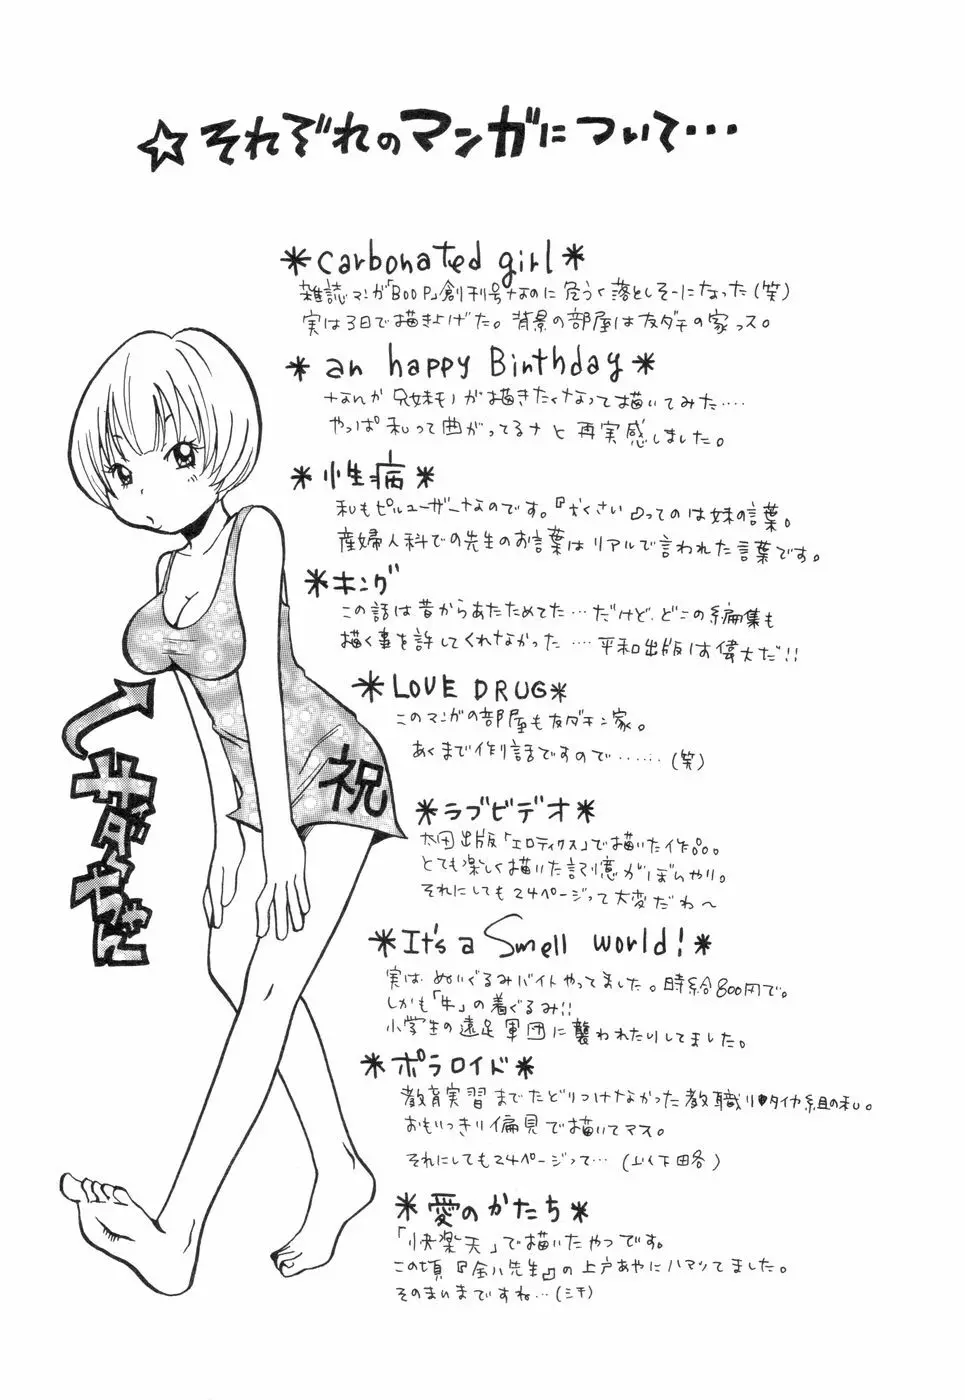 ☆それぞれのマンガについて・・・
＊carbonated girl＊
雑誌マンガ「BOOP」創刊号なのに危うく落としそーになった(笑)
実は3日で描きあげた。背景の部屋は友ダチの家っス。
＊an happy Birthday＊
なんか兄妹モノが描きたくなって描いてみた‥‥
やっぱ私って曲がってるナと再実感しました。
＊性病＊
私もピルユーザーなのです。『くさい』ってのは妹の言葉。
産婦人科での先生のお言葉はリアルで言われた言葉です。
＊キング
この話は昔からあたためてた…だけど、どこの編集も
描く事を許してくれなかった‥‥平和出版は偉大だ!!
＊LOVE DRUG＊
このマンガの部屋も友ダチン家。
あくまで作り話ですので‥‥‥(笑)
＊ラブビデオ＊
太田出版「エロティクス」で描いた作品。
とても楽しく描いた記憶がぼんやり。
それにしても24ページって大変だわ～
＊It's a Smell world!＊
実はぬいぐるみバイトやってました。時給800円で。
しかも「牛」の着ぐるみ!!
小学生の遠足軍団に襲われたりしてました。
＊ポラロイド＊
教育実習までたどりつけなかった教職リタイヤ組の私。
おもいっきり偏見で描いてマス。
それにしても24ページって…(以下略)
＊愛のかたち＊
「快楽天」で描いたやつです。
この頃『金八先生』の上戸あやにハマってました。
そのまいまですね…(シモ)
祝
サダちゃん